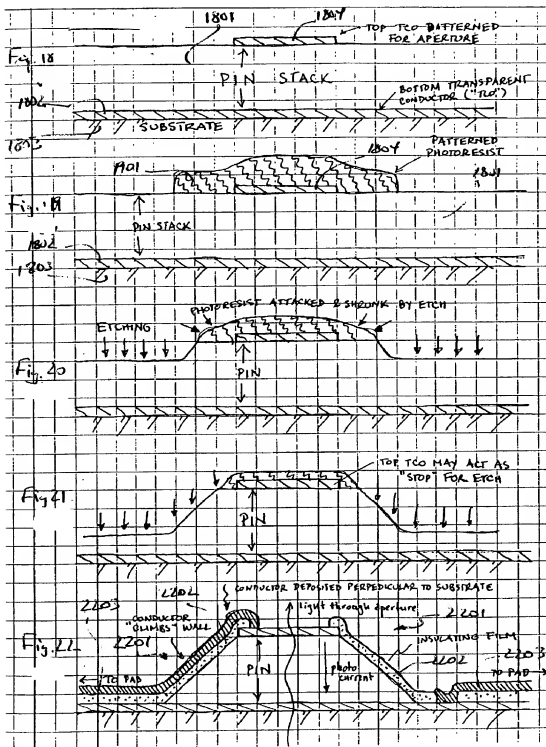 1801
1804
TOP TCO PATTERNED
FOR APERTURE
Fig. 18
PIN STACK
1802
BOTTOM TRANSPARENT
CONDUCTOR ("TCO")
SUBSTRATE
1803
1804
PATTERNED
PHOTORESIST
1901
1801
Fig. 19
PIN STACK
1802
1803
PHOTORESIST ATTACKED & SHRUNK BY ETCH
ETCHING
Fig. 20
PIN
TOP TCO MAY ACT AS
"STOP" FOR ETCH
Fig 21
PIN
2202
CONDUCTOR DEPOSITED PERPEDICULAR TO SUBSTRATE
2203
"CONDUCTOR
CLIMBS" WALL
light through aperture
2201
2201
Fig. 22
INSULATING FILM
PIN
photo
current
2202
2203
TO PAD
TO PAD